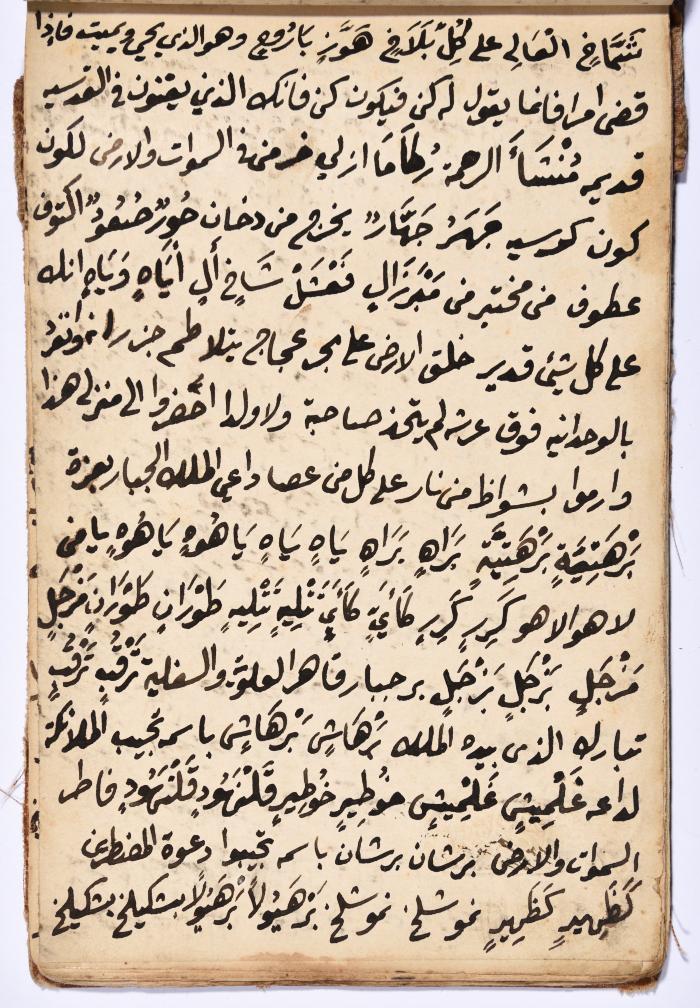 شَمَّاخٍ العَالِي على كُلِّ بَلَاخٍ هَوَّزٍ بَارُوخٍ وهو الذي يحيي ويميت فاذا
قضى امرا فانما يقول له كن فيكون كن فانك الذي يقنون في القدسيه
قديمه مُنْشَأَ الرحمة طَامَا ازلي خر من في السموات والارض لكون
كون كورسيه جَهَرٌ جَهَّارٌ يخرج من دخان حُورٌ صُعُودٌ اكتوف
عطوف من مختبر من مَبْرَزَالٍ نَعْشَلْ شَاخٍ أَلٍ أَيَاهٍ وَيَاهٍ انك
على كل شيئ قدير خلق الارض على بحر عجاج يتلاطم جزرانه وانفرد
بالوحدانيه فوق عرشه لم يتخذ صاحبة ولا ولدا احضروا الى منزلي هذا
وارموا بشواظ من نار على كل من عصا داعي الملك الجبار بعزة
بَرْهَتِيَةٍ بَرْهَتِيَّةٍ بَرَاهٍ بَرَاهٍ يَاهٍ يَاهٍ يَاهُوهٍ يَاهُوهٍ يا من
لا هو الا هو كَرِيرٍ كَرِيرٍ كَأَيٍّ كَأَيٍّ تَتْلِيهٍ تَتْلِيهٍ طَوْرَانٍ طَوْرَانٍ مَزْجَلٍ
مَزْجَلٍ بَزْجَلٍ بَزْجَلٍ بر جبار قاهر العلوية والسفلية تَرْقَبٍ تَرْقَبٍ
تبارك الذي بيده الملك بَرْهَاشٍ بَرْهَاشٍ باسمه تجيب الملائكة
لداعه غَلْمِيشٍ غَلْمِيشٍ خوُطِيرٍ خوُطِيرٍ قَلْنَهُودٍ قَلْنَهُودٍ فاطر
السموات والارض برشان برشان باسمه تجيبوا دعوة المضطرين
كَظْهِيرٍ كَظْهِيرٍ نموشلخ نموشلخ بَرْهَيُولاً بَرْهَيُولاً بشكيلخ بشكيلخ